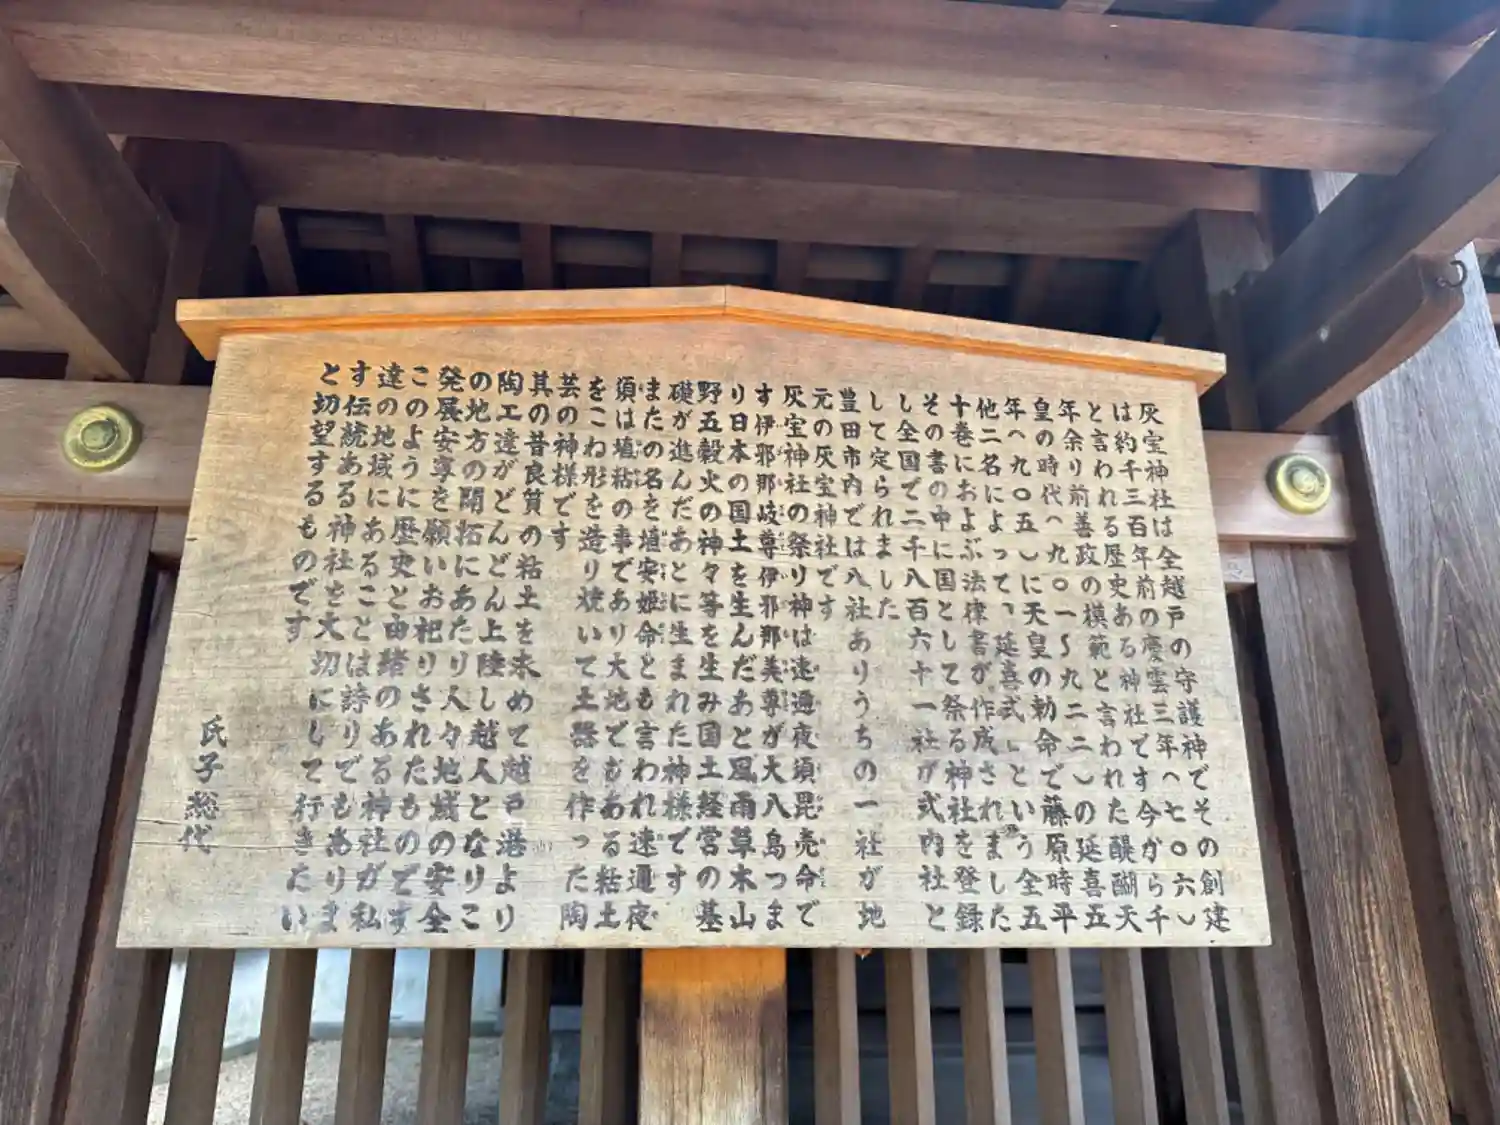 灰宝神社は全越戸の守護神でその創建
は約千三百年前の慶雲三年(七〇六)
と言われる歴史ある神社です今から千
年余り前善政の模範と言われた醍醐天
皇の時代(九〇一~九二二)の延喜五
年(九〇五)に天皇の勅命で藤原時平
他二名によって「延喜式」という全五
十巻におよぶ法律書が作成されました
その書の中に国として祭る神社を登録
し全国で二千八百六十一社が式内社と
して定られました
豊田市内では八社ありうちの一社が地
元の灰宝神社です
灰宝神社の祭り神は速邇夜須毘売命で
す伊邪那岐尊伊邪那美尊が大八島つま
り日本の国土を生んだあと風雨草木山
野五穀火の神々等を生み国土経営の基
礎が進んだあとに生まれた神様です
またの名を埴安姫命とも言われ速邇夜
須は埴粘の事であり大地でもある粘土
をこね形を造り焼いて土器を作った陶
芸の神様です
其の昔良質の粘土を求めて越戸港より
陶工達がどんどん上陸し越人となりこ
の地方の開拓にあたり人々地域の安全
発展安寧を願いお祀りされたものです
このように歴史と由緒のある神社が私
達の地域にあることは誇りでもありま
す伝統ある神社を大切にして行きたい
と切望するものです
氏子総代